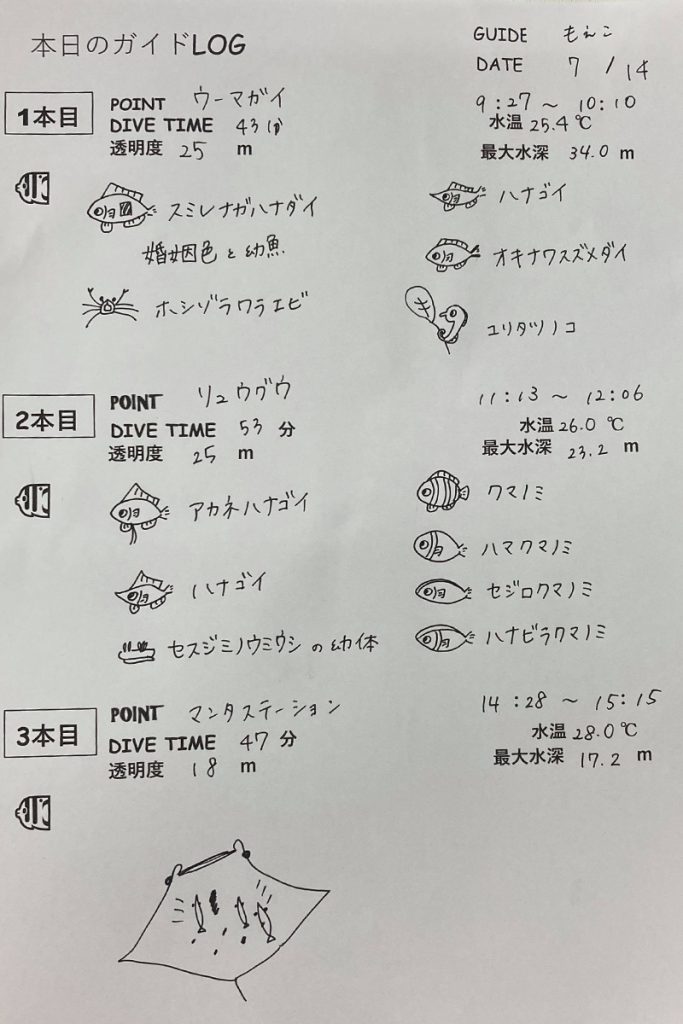 本日のガイドLOG
GUIDE もえこ
DATE 7 / 14
1本目
POINT ウーマガイ
9:27 ~ 10:10
DIVE TIME 43分
水温 25.4℃
透明度 25 m
最大水深 34.0 m
スミレナガハナダイ
婚姻色と幼魚
ハナゴイ
オキナワスズメダイ
ホシゾラワラエビ
キ
ユリタツノコ
2本目
POINT リュウグウ
11:13 ~ 12:06
DIVE TIME 53 分
水温 26.0 ℃
透明度 25 m
最大水深 23.2 m
アカネハナゴイ
クマノミ
ハマクマノミ
ハナゴイ
セジロクマノミ
セスジミノウミウシの幼体
ハナビラクマノミ
3本目
POINT マンタステーション
14:28 ~ 15:15
DIVE TIME 47 分
水温 28.0℃
透明度 18 m
最大水深 17.2 m